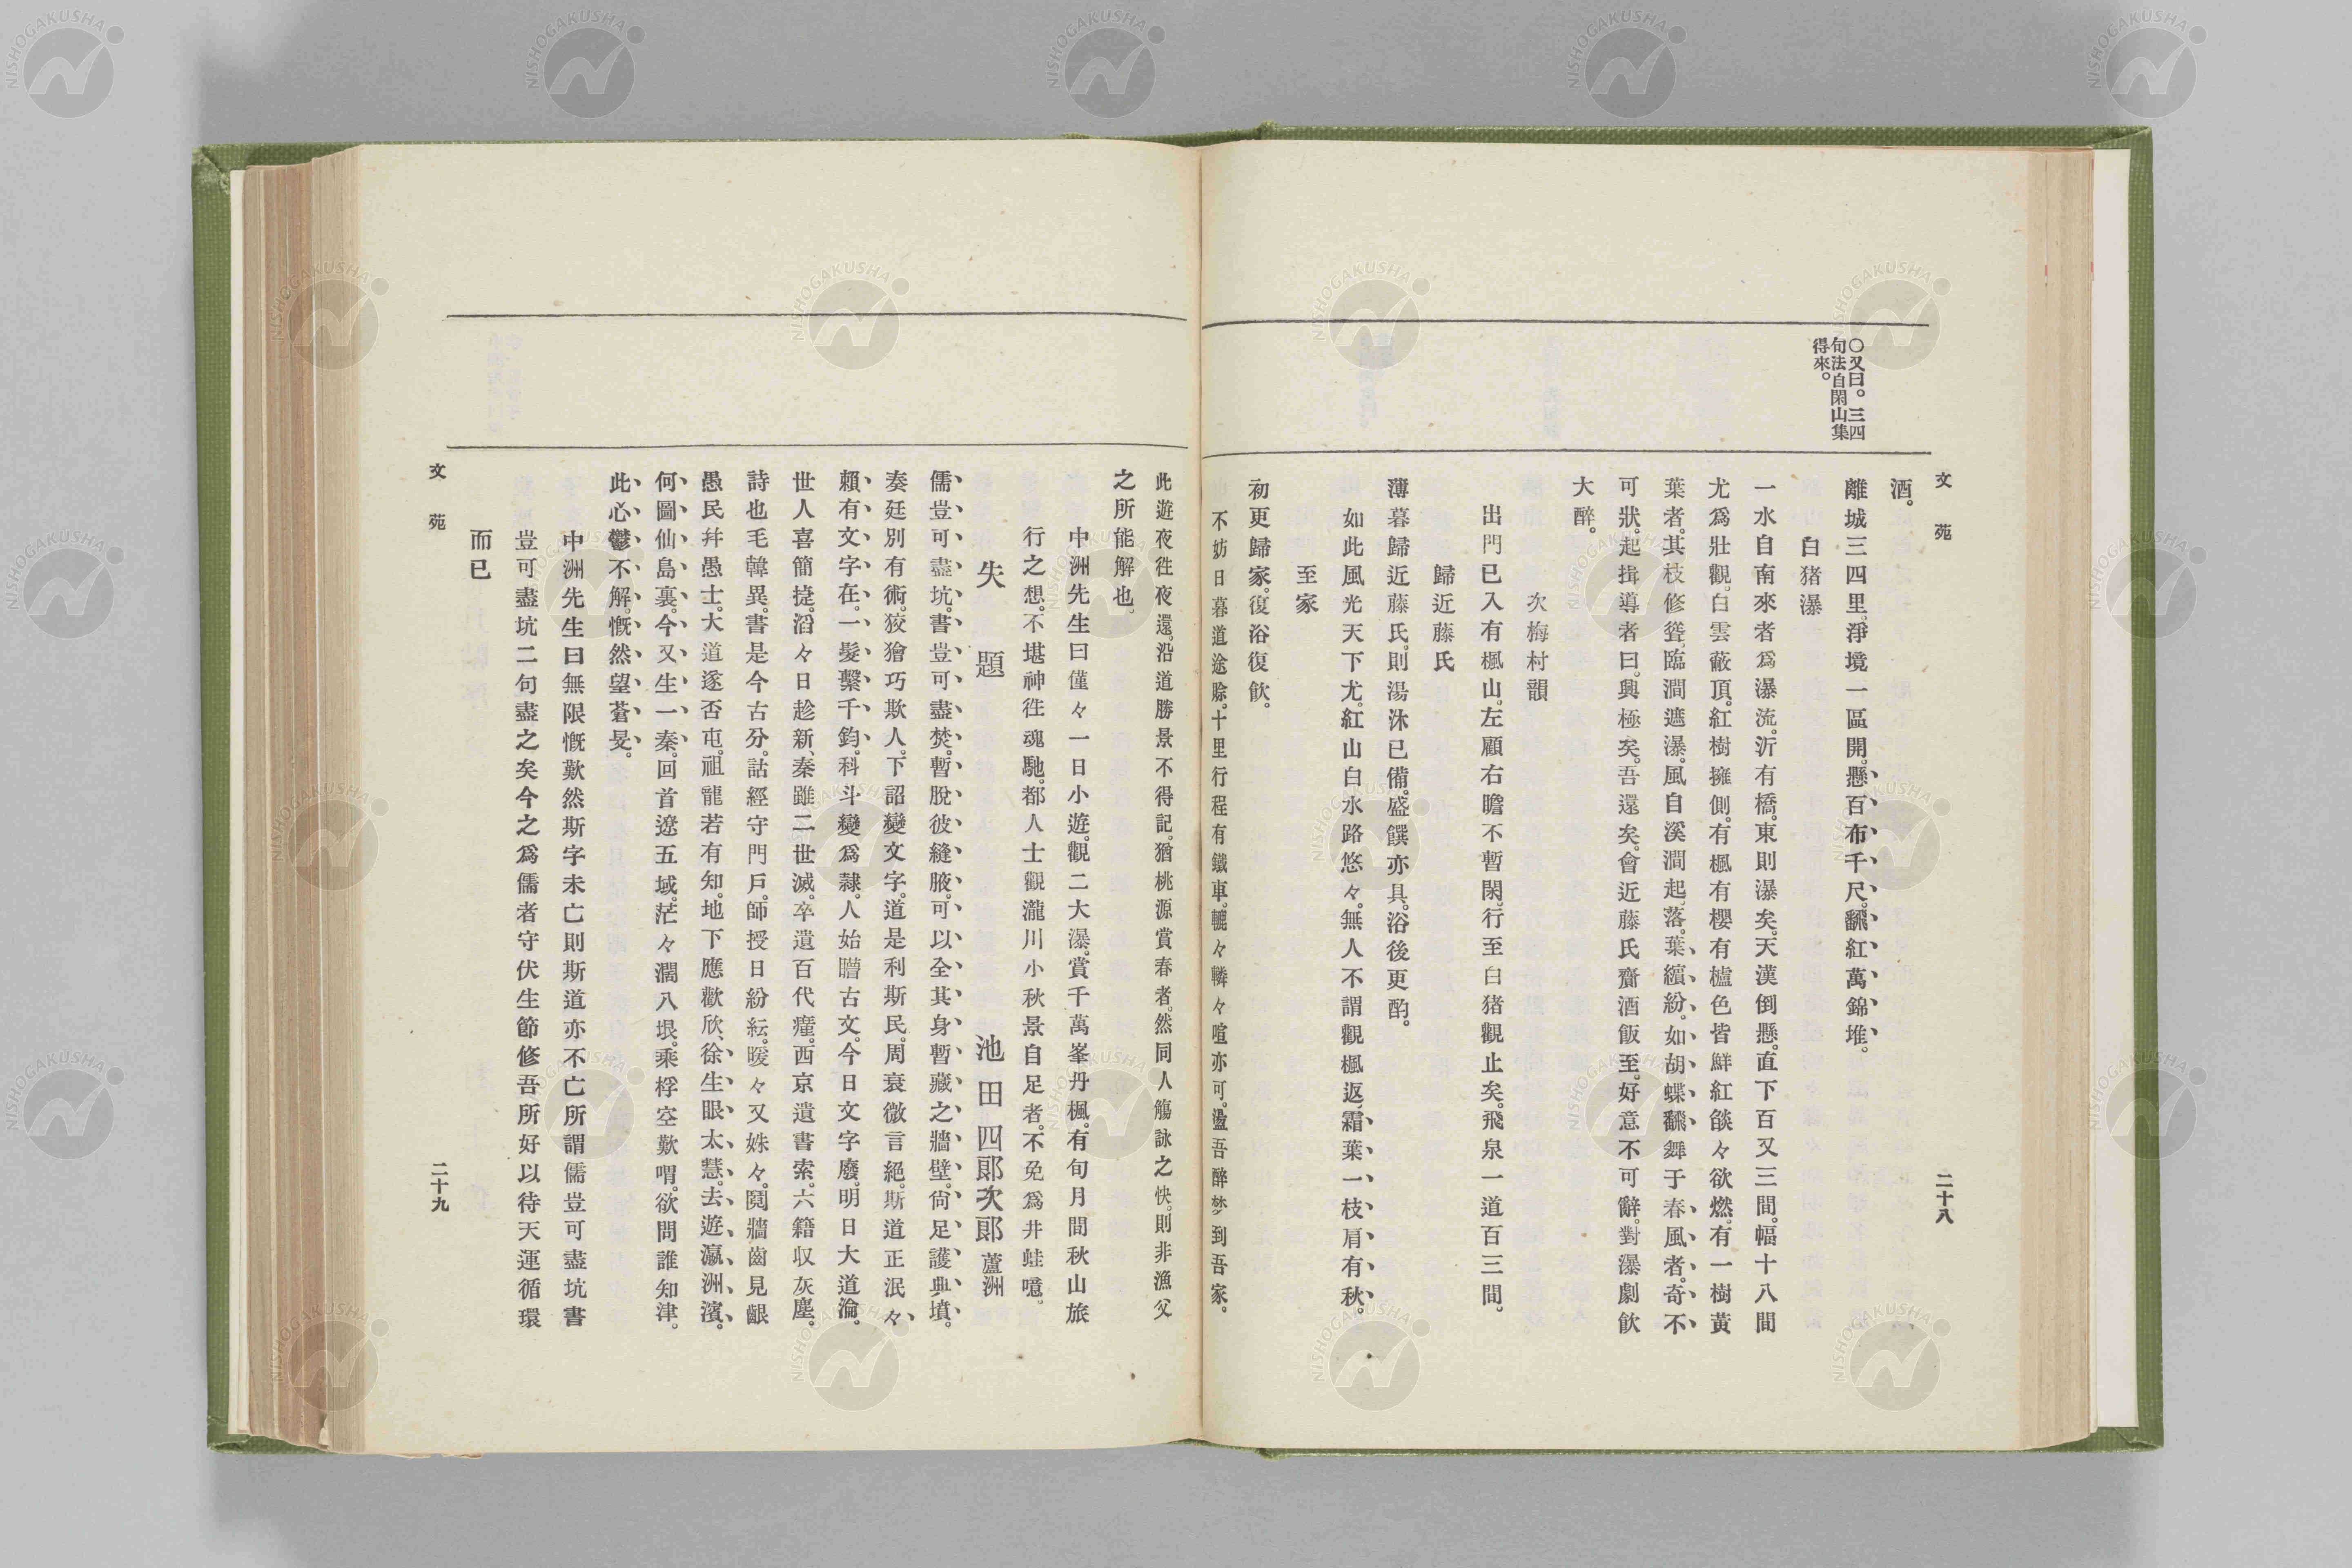 文苑
二十八
〇又曰。三四
句法自閑山集
得來。
酒。
離城三四里。淨境一區開。懸百布千尺。飜紅萬錦堆。
白猪瀑
一水自南來者爲瀑流。沂有橋。東則瀑矣。天漢倒懸。直下百又三間。幅十八間
尤爲壯觀。白雲蔽頂。紅樹擁側。有楓有櫻有櫨色皆鮮紅燄々欲燃。有一樹黃
葉者。其枝修聳。臨澗遮瀑。風自溪澗起。落葉繽紛。如胡蝶飜舞于春風者。奇不
可狀。起揖導者曰。興極矣。吾還矣。會近藤氏齎酒飯至。好意不可辭。對瀑劇飮
大醉。
次梅村韻
出門已入有楓山。左顧右瞻不暫閑。行至白猪觀止矣。飛泉一道百三間。
歸近藤氏
薄暮歸近藤氏。則湯沐已備。盛饌亦具。浴後更酌。
如此風光天下尤。紅山白水路悠々。無人不謂觀楓返。霜葉一枝肩有秋。
至家
初更歸家。復浴復飮。
不妨日暮道途賒。十里行程有鐵車。轣々轔々喧亦可。盪吾醉梦到吾家。
此遊夜徃夜還。沿道勝景不得記。猶桃源賞春者。然同人觴詠之快。則非漁父
之所能解也。
中洲先生曰僅々一日小遊。觀二大瀑。賞千萬峯丹楓。有旬月間秋山旅
行之想。不堪神徃魂馳。都人士觀瀧川小秋景自足者。不免爲井蛙噫。
失題
池田四郞次郞 蘆洲
儒豈可盡坑。書豈可盡焚。暫脫彼縫腋。可以全其身。暫藏之牆壁。尙足護典墳。
奏廷別有術。狡獪巧欺人。下詔變文字。道是利斯民。周衰微言絕。斯道正泯々
賴有文字在。一髮繫千鈞。科斗變爲隷。人始瞢古文。今日文字廢。明日大道淪。
世人喜簡捷。滔々日趁新。秦雖二世滅。卒遺百代癉。西京遺書索。六籍収灰塵。
詩也毛韓異。書是今古分。詁經守門戶。師授日紛紜。暖々又姝々。鬩牆齒見齦
愚民幷愚士。大道遂否屯。祖龍若有知。地下應歡欣。徐生眼太慧。去遊瀛洲濱。
何圖仙島裏。今又生一秦。回首遼五域。茫々濶八垠。乘桴空歎喟。欲問誰知津。
此心鬱不解。慨然望蒼旻。
中洲先生曰無限慨歎然斯字未亡則斯道亦不亡所謂儒豈可盡坑書
豈可盡坑二句盡之矣今之爲儒者守伏生節修吾所好以待天運循環
而已
文苑
二十九